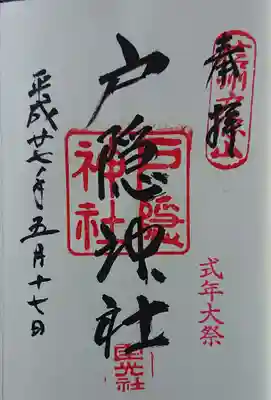 奉拝
戸隠神社
戸隠
神社
式年大祭
平成廿七年五月十七日